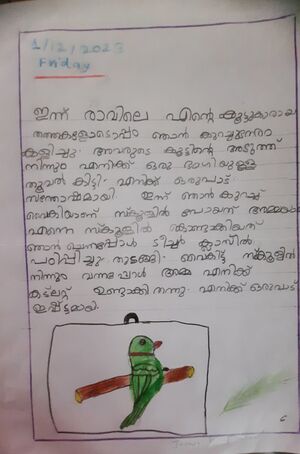 1/12/2023
Friday
ഇന്ന് രാവിലെ എന്റെ കൂട്ടുകാരായ
തത്തകളോടൊപ്പം ഞാൻ കുറച്ചുനേരം
കളിച്ചു. അവരുടെ കൂട്ടിന്റെ അടുത്ത്
നിന്നും എനിക്ക് ഒരു ഭംഗിയുള്ള
തൂവൽ കിട്ടി. എനിക്ക് ഒരുപാട്
സന്തോഷമായി. ഇന്ന് ഞാൻ കുറച്ച്
വൈകിയാണ് സ്കൂളിൽ പോയത് അമ്മയാണ്
എന്നെ സ്കൂളിൽ കൊണ്ടാക്കിയത്
ഞാൻ ചെന്നപ്പോൾ ടീച്ചർ ക്ലാസിൽ
പഠിപ്പിച്ചു തുടങ്ങി. വൈകിട്ട് സ്കൂളിൽ
നിന്നും വന്നപ്പോൾ അമ്മ എനിക്ക്
കട്ട്ലറ്റ് ഉണ്ടാക്കി തന്നു. എനിക്ക് ഒരുപാട്
ഇഷ്ട്ടമായി.